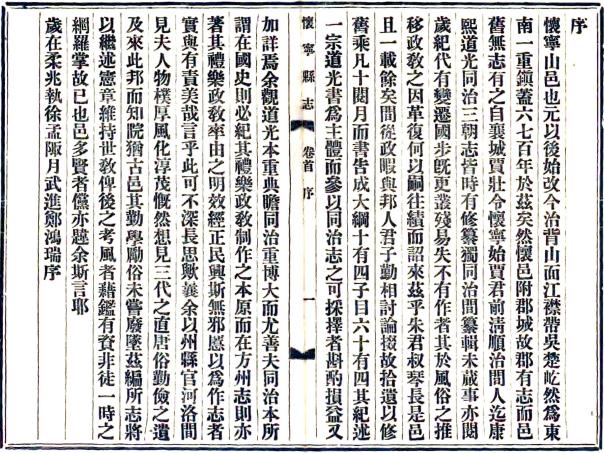 序
懷寧山邑也元以後始改今治背山面江襟帶吳楚屹然為東
南一重鎮蓋六七百年於茲矣然懷邑附郡城故郡有志而邑
舊無志有之自襄城賈壯令懷寧始賈君前清順治間人迄康
熙道光同治三朝志皆時有修纂獨同治間纂輯未蕆事亦閱
歲紀代有變遷國步旣更叢殘易失不有作者其於風俗之推
移政敎之因革復何以嗣往績而詔來茲乎朱君叔琴長是邑
且一載餘矣間從政暇與邦人君子勤相討論掇故拾遺以修
舊乘凡十閱月而書告成大綱十有四子目六十有四其紀述
一宗道光書為主體而參以同治志之可採擇者斟酌損益又
懷寧縣志
卷首 序
一
加詳焉余觀道光本重典贍同治重博大而尤善夫同治本所
謂在國史則必紀其禮樂政敎制作之本原而在方州志則亦
著其禮樂政敎率由之明效經正民興斯無邪慝以為作志者
實與有責美哉言乎此可不深長思歟義余以州縣官河洛間
見夫人物樸厚風化淳茂慨然想見三代之直唐俗勤儉之遺
及來此邦而知院猶古邑其勤學勵俗未嘗廢墜茲編所志將
以繼述憲章維持世敎俾後之考風者藉鑑有資非徒一時之
網羅掌故已也邑多賢者儻亦韙余斯言耶
歲在柔兆執徐孟陬月武進鄭鴻瑞序